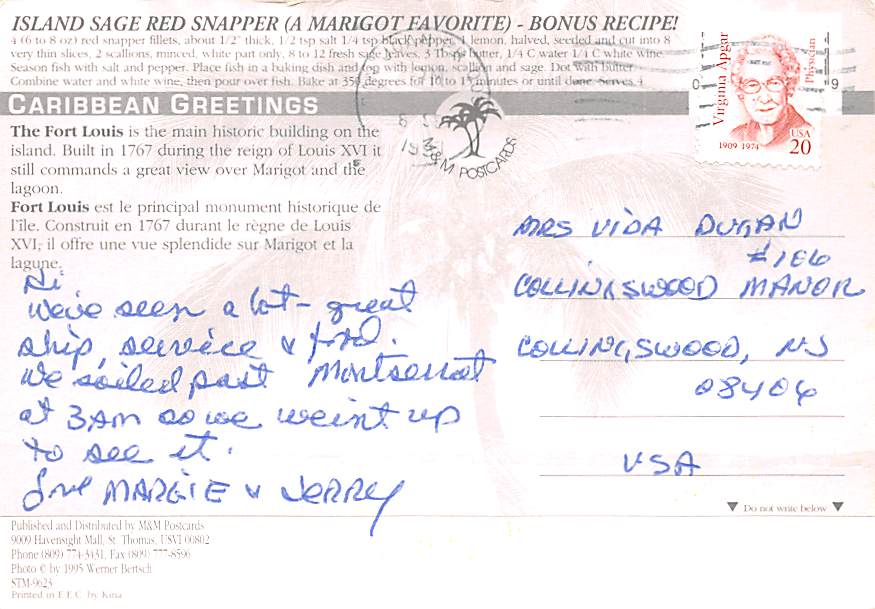 ISLAND SAGE RED SNAPPER (A MARIGOT FAVORITE) - BONUS RECIPE!
4 (6 to 8 oz) red snapper fillets, about 1/2" thick, 1/2 tsp salt 1/4 tsp black pepper, 1 lemon, halved, seeded and cut into 8
very thin slices, 2 scallions, minced, white part only, 8 to 12 fresh sage leaves, 3 Tbsps butter, 1/4 C water 1/4 C white wine.
Season fish with salt and pepper. Place fish in a baking dish and top with lemon, scallion and sage. Dot with butter.
Combine water and white wine, then pour over fish. Bake at 350 degrees for 10 to 15 minutes or until done. Serves 4
CARIBBEAN GREETINGS
The Fort Louis is the main historic building on the
island. Built in 1767 during the reign of Louis XVI it
still commands a great view over Marigot and the
lagoon.
Fort Louis est le principal monument historique de
l'île. Construit en 1767 durant le règne de Louis
XVI, il offre une vue splendide sur Marigot et la
lagune.
M&M POSTCARDS
Virginia Apgar
Physician
1909 1974
USA
20
Hi
We've seen a lot - great
ship, service & food.
We sailed past Montserrat
at 3AM so we weint up
to see it.
Love MARGIE & JERRY
MRS VIDA DUGAN
#106
COLLINGSWOOD MANOR
COLLINGSWOOD, NJ
08406
USA
▼ Do not write below ▼
Published and Distributed by M&M Postcards
9009 Havensight Mall, St. Thomas, USVI 00802
Phone (809) 774-3431, Fax (809) 777-8596
Photo © by 1995 Werner Bertsch
STM-9623
Printed in E.E.C. by Kina